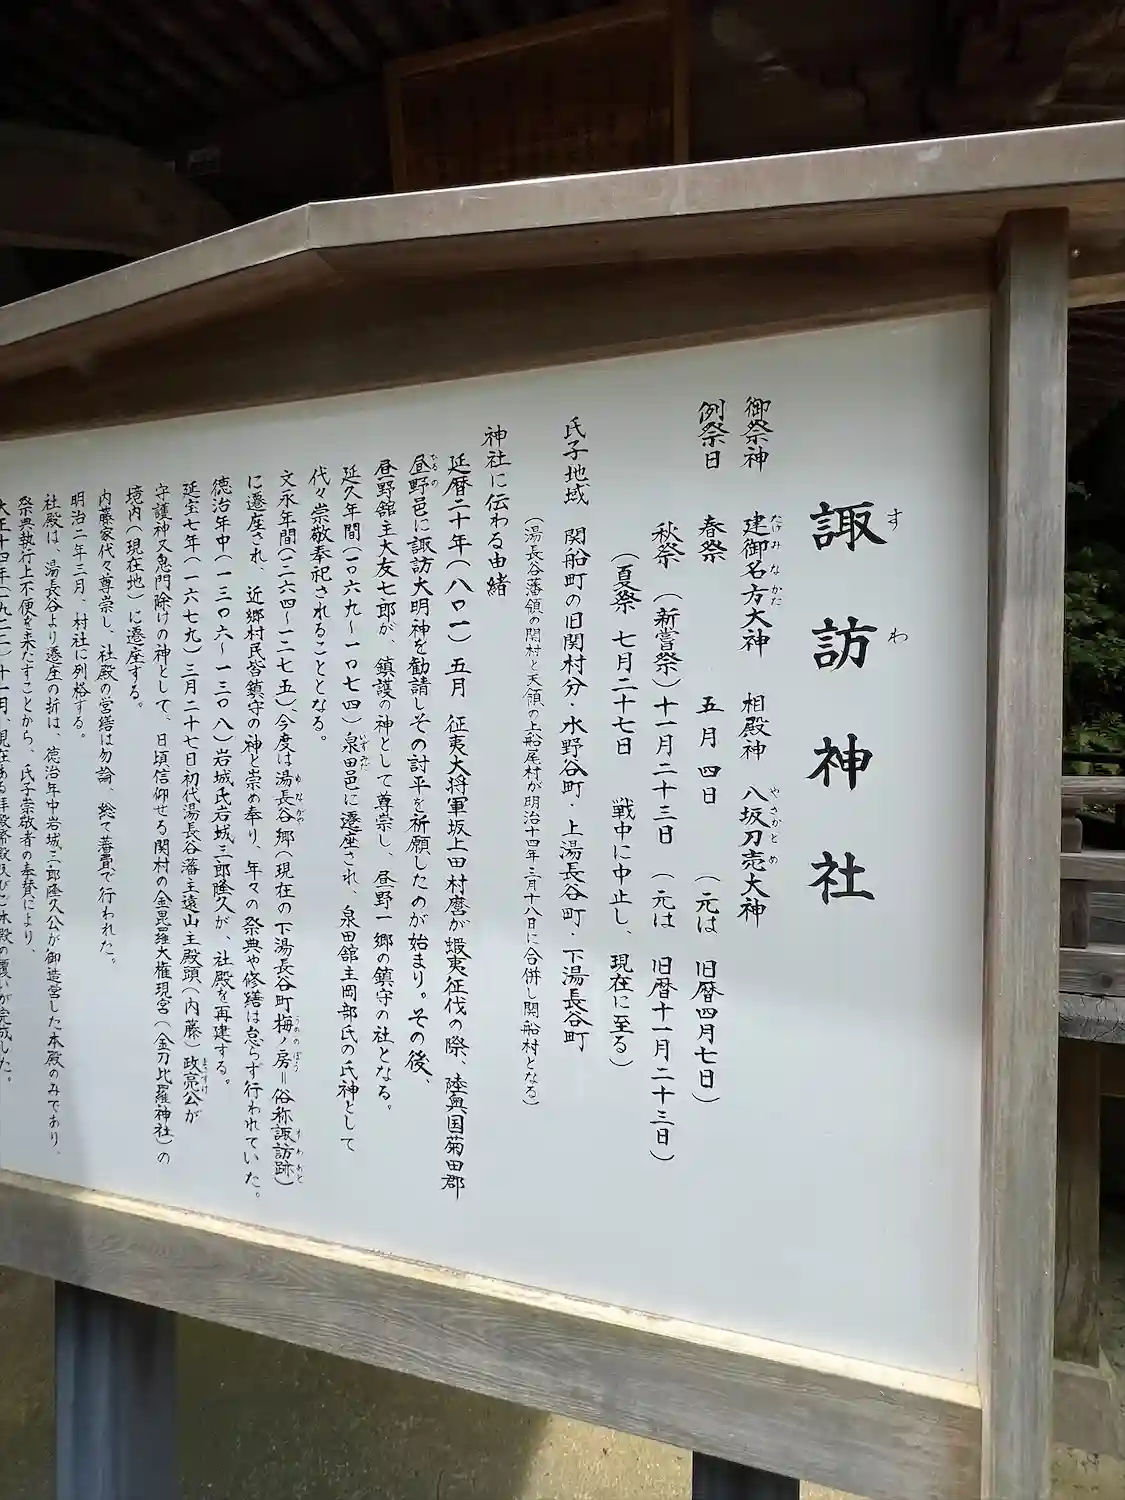 諏訪神社
すわ
御祭神 建御名方大神 相殿神 八坂刀売大神
たけみなかた やさかとめ
例祭日 春祭 五月四日 (元は 旧暦四月七日)
秋祭 (新嘗祭)十一月二十三日 (元は 旧暦十一月二十三日)
(夏祭 七月二十七日 戦中に中止し、現在に至る)
氏子地域 関船町の旧関村分・水野谷町・上湯長谷町・下湯長谷町
(湯長谷藩領の関村と天領の上船尾村が明治十四年三月十八日に合併し関船村となる)
神社に伝わる由緒
延暦二十年(八〇一)五月 征夷大将軍坂上田村麿が蝦夷征伐の際、陸奥国菊田郡
昼野邑に諏訪大明神を勧請しその討平を祈願したのが始まり。その後、
ひるの
昼野舘主大友七郎が、鎮護の神として尊崇し、昼野一郷の鎮守の社となる。
延久年間(一〇六九〜一〇七四)泉田邑に遷座され、泉田舘主岡部氏の氏神として
いずみだ
代々崇敬奉祀されることとなる。
文永年間(一二六四〜一二七五)、今度は湯長谷郷(現在の下湯長谷町梅ノ房=俗称諏訪跡)
ゆながや うめのぼう すわあと
に遷座され、近郷村民皆鎮守の神と崇め奉り、年々の祭典や修繕は怠らず行われていた。
徳治年中(一三〇六〜一三〇八)岩城氏岩城三郎隆久が、社殿を再建する。
延宝七年(一六七九)三月二十七日初代湯長谷藩主遠山主殿頭(内藤)政亮公が
まさすけ
守護神又鬼門除けの神として、日頃信仰せる関村の金毘羅大権現宮(金刀比羅神社)の
境内(現在地)に遷座する。
内藤家代々尊崇し、社殿の営繕は勿論、総て藩費で行われた。
明治二年三月、村社に列格する。
社殿は、湯長谷より遷座の折は、徳治年中岩城三郎隆久公が御造営した本殿のみであり、
祭典執行上不便を来たすことから、氏子崇敬者の奉賛により、
大正十四年